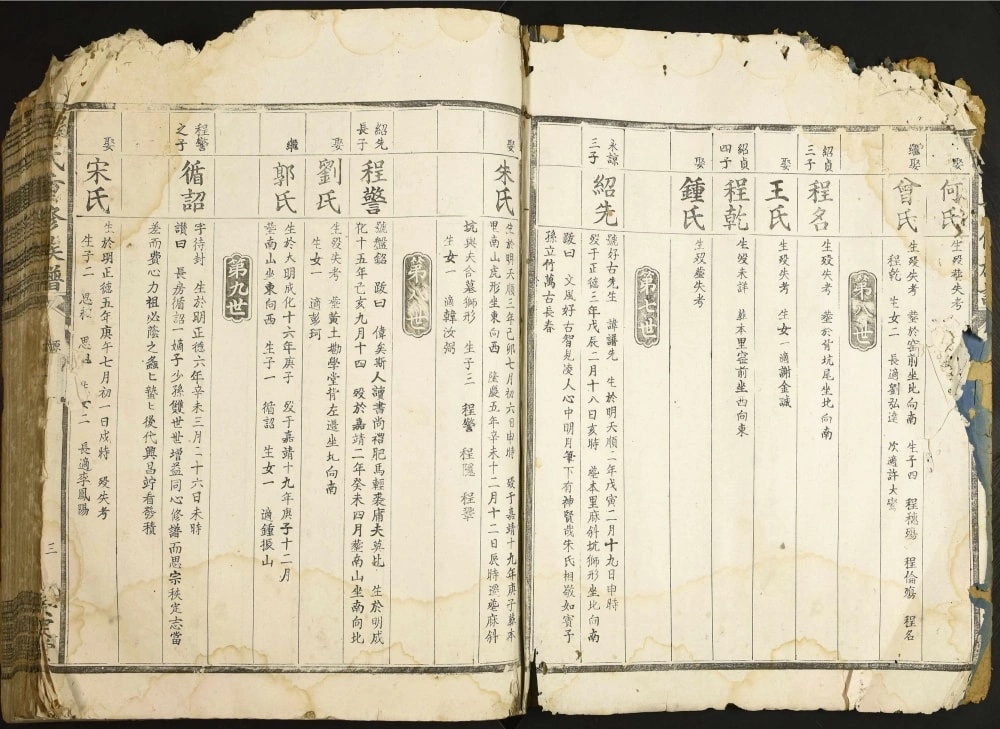 娶
何氏
生歿塟失考
繼娶
曾氏
生歿失考 塟於窖前坐北向南 生子四 程穗殤 程倫殤 程名
程乾 生女二 長適劉弘達 次適許大
第八世
紹貞
三子
程名
生歿失考 塟於背坑尾坐北向南
娶
王氏
生歿失考 生女一適謝金誠
紹貞
四子
程乾
生歿未詳 葬本里窑前坐西向東
娶
鍾氏
生歿塟失考
第七世
永諒
三子
紹先
號好古先生 諱講先 生於明天順二年戊寅二月十九日申時
歿于正德三年戊辰二月十八日亥時 塟本里麻斜坑獅形坐北向南
跋曰 文風好古智見凌人心中明月筆下有神賢哉朱氏相敬如賓子
孫立竹萬古長春
娶
朱氏
生於明天順三年己卯七月初六日申時 歿于嘉靖十九年庚子葬本
里南山虎形坐東向西 隆慶五年辛未十二月十二日辰時遷塟麻斜
坑與夫合墓獅形 生子三 程警 程隱 程
生女一 適韓汝弼
第八世
紹先
長子
程警
號盤銘 跋曰 偉矣斯人讀書尚禮肥馬輕裘庸夫莫比 生於明成
化十五年己亥九月十四 歿於嘉靖二年癸未四月塟南山坐南向北
娶
劉氏
生歿失考 塟黃土坳學堂背左邊坐北向南
生女一 適彭珂
繼
郭氏
生於大明成化十六年庚子 歿于嘉靖十九年庚子十二月
塟南山坐東向西 生子一 循詔 生女一 適鍾振山
第九世
程警
之子
循詔
字待封 生於明正德六年辛未三月二十六日未時
讚曰 長房循詔一嫡子少孫雙世世增益同心修譜而思宗秩定志當
差而費心力祖必蔭之螽匕蟄匕後代興昌竚看發積
娶
宋氏
生於明正德五年庚午七月初一日戌時 歿失考
生子二 思 思 生女二 長適李鳳陽
氏會修族譜
三